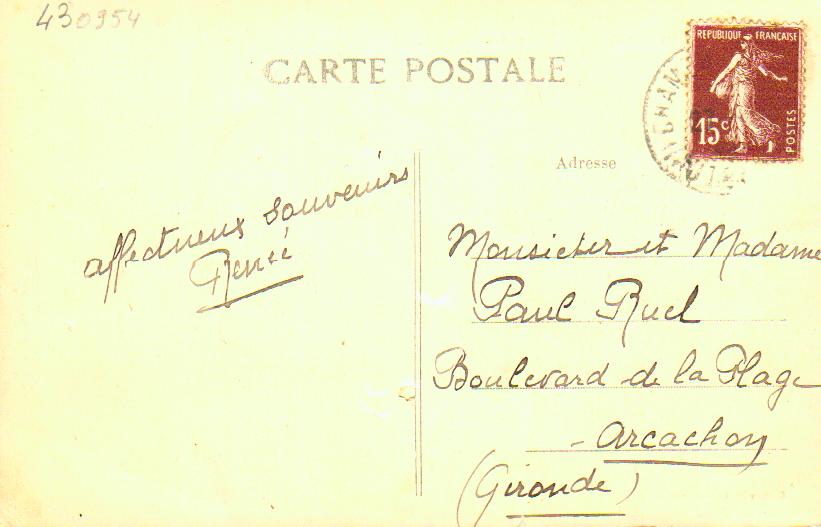 430954
CARTE POSTALE
REPUBLIQUE FRANÇAISE
15c
POSTES
Adresse
affectueux souvenirs
René
Monsieur et Madame
Paul Ruel
Boulevard de la Plage
- Arcachon
(Gironde)